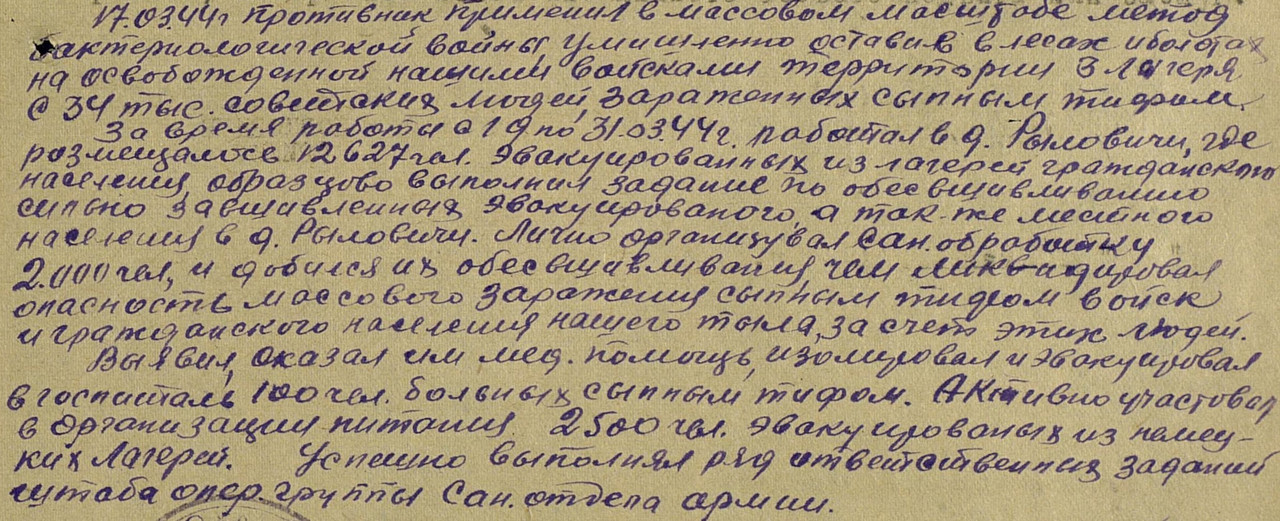 17.03.44г противник применил в массовом масштабе метод
бактериологической войны, умышленно оставив в лесах и болотах
на освобожденной нашими войсками территории 3 лагеря
с 34 тыс. советских людей, зараженных сыпным тифом.
За время работы с 19 по 31.03.44г. работал в д. Рыловичи, где
размещалось 12627 чел. эвакуированных из лагерей гражданского
населения, образцово выполнил задание по обесвшивливанию
сильно завшивленных эвакуированого, а так-же местного
населения в д. Рыловичи. Лично организувал сан. обработку
2.000 чел, и добился их обесвшивливания, чем ликвидировал
опасность массового заражения сыпным тифом войск
и гражданского населения нашего тыла, за счет этих людей.
Выявил, оказал им мед. помощь, изолировал и эвакуировал
в госпиталь 100 чел. больных сыпным тифом. Активно участовал
в организации питания 2500 чел. эвакуированых из немец-
ких лагерей. Успешно выполнял ряд ответственных заданий
штаба опер. группы Сан. отдела армии.